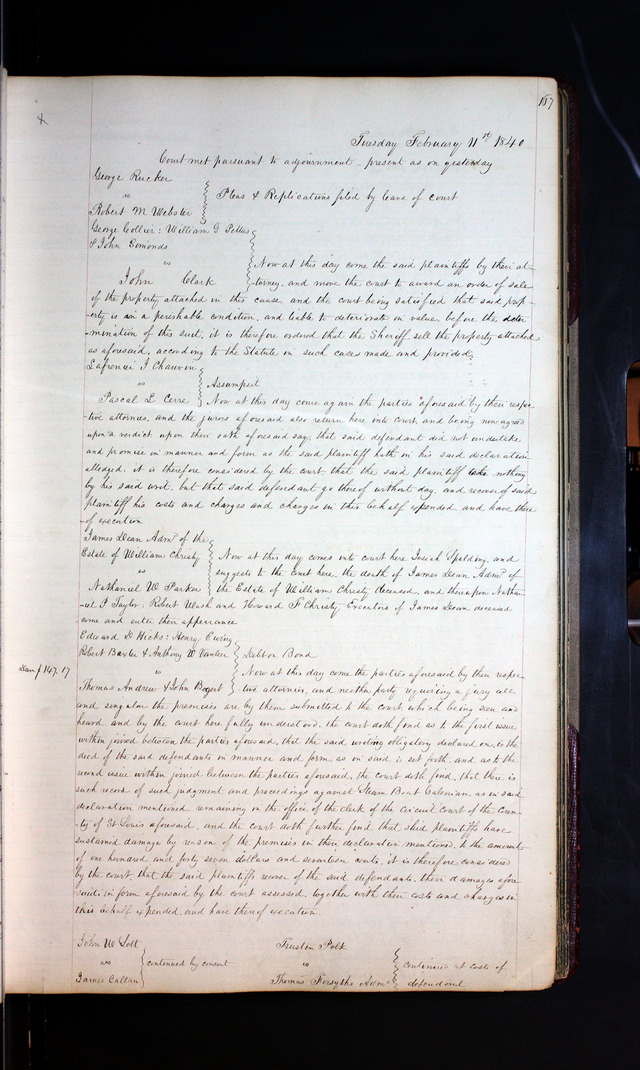 187
Tuesday February 11th 1840
Court met pursuant to adjournment – present as on yesterday
George Rucker
vs
Pleas & Replications filed by leave of court
Robert M. Webster
George Collier: William G Pettus
& John Simonds
vs
Now at this day come the said plaintiffs by their at-
John Clark
torney, and move the court to award an order of sale
of the property attached in this cause, and the court being satisfied that said prop-
-erty is in a perishable condition, and liable to deteriorate in value before the deter
-mination of this suit, it is therefore ordered that the Sheriff sell the property attached
as aforesaid, according to the Statute in such cases made and provided.
Lafrenier J Chauvin
vs
Assumpsit
Pascal L Cerre
Now at this day come again the parties aforesaid by their respec-
-tive attornies, and the jurors aforesaid also return here into court and being now agreed
upon a verdict upon their oath aforesaid say, that said defendant did not undertake
and promise in manner and form as the said plaintiff hath in his said declaration
alledged; it is therefore considered by the court, that the said plaintiff take nothing
by his said writ, but that said defendant go thereof without day, and recover of said
plaintiff his costs and charges and charges in this behalf expended and have there
-of execution
James Dean Admr of the
Estate of William Christy
Now at this day comes into court here Josiah Spalding, and
vs
suggests to the court here, the death of James Dean Admr of
Nathaniel W Parker
the Estate of William Christy deceased, and thereupon Nathan-
-iel P Taylor, Robert Wash and Howard F Christy Executors of James Dean deceased
come and enter their appearance
Edward D Hicks: Henry Ewing
Robert Baxter & Anthony W Vanleer
Debt on Bond
Dam $147.17
vs
Now at this day come the parties aforesaid by their respec-
Thomas Andrew & John Bogert
tive attornies, and neither party requiring a jury all
and singular the premises are by them submitted to the court, which being seen and
heard and by the court here fully understood, the court doth find as to the first issue
within joined between the parties aforesaid, that the said writing obligatory declared on, is the
deed of the said defendants in manner and form, as in said is set forth, and as to the
second issue within joined between the parties aforesaid, the court doth find, that there is
such record of such judgment and proceedings against Steam Boat Galenian, as in said
declaration mentioned remaining in the office of the clerk of the Circuit Court of the Coun-
-ty of St Louis aforesaid, and the court doth further find that said plaintiffs have
sustained damage by reason of the premises in their declaration mentioned, to the amount
of one hundred and forty seven dollars and seventeen cents, it is therefore considered
by the court, that the said plaintiffs recover of the said defendants, their damages afore
-said, in form aforesaid by the court assessed, together with their costs and charges in
this behalf expended, and have thereof execution.
John W
Trusten Polk
vs
continued by consent
vs
continued at costs of
James Callan
Thomas Forsyths Admr
defendant